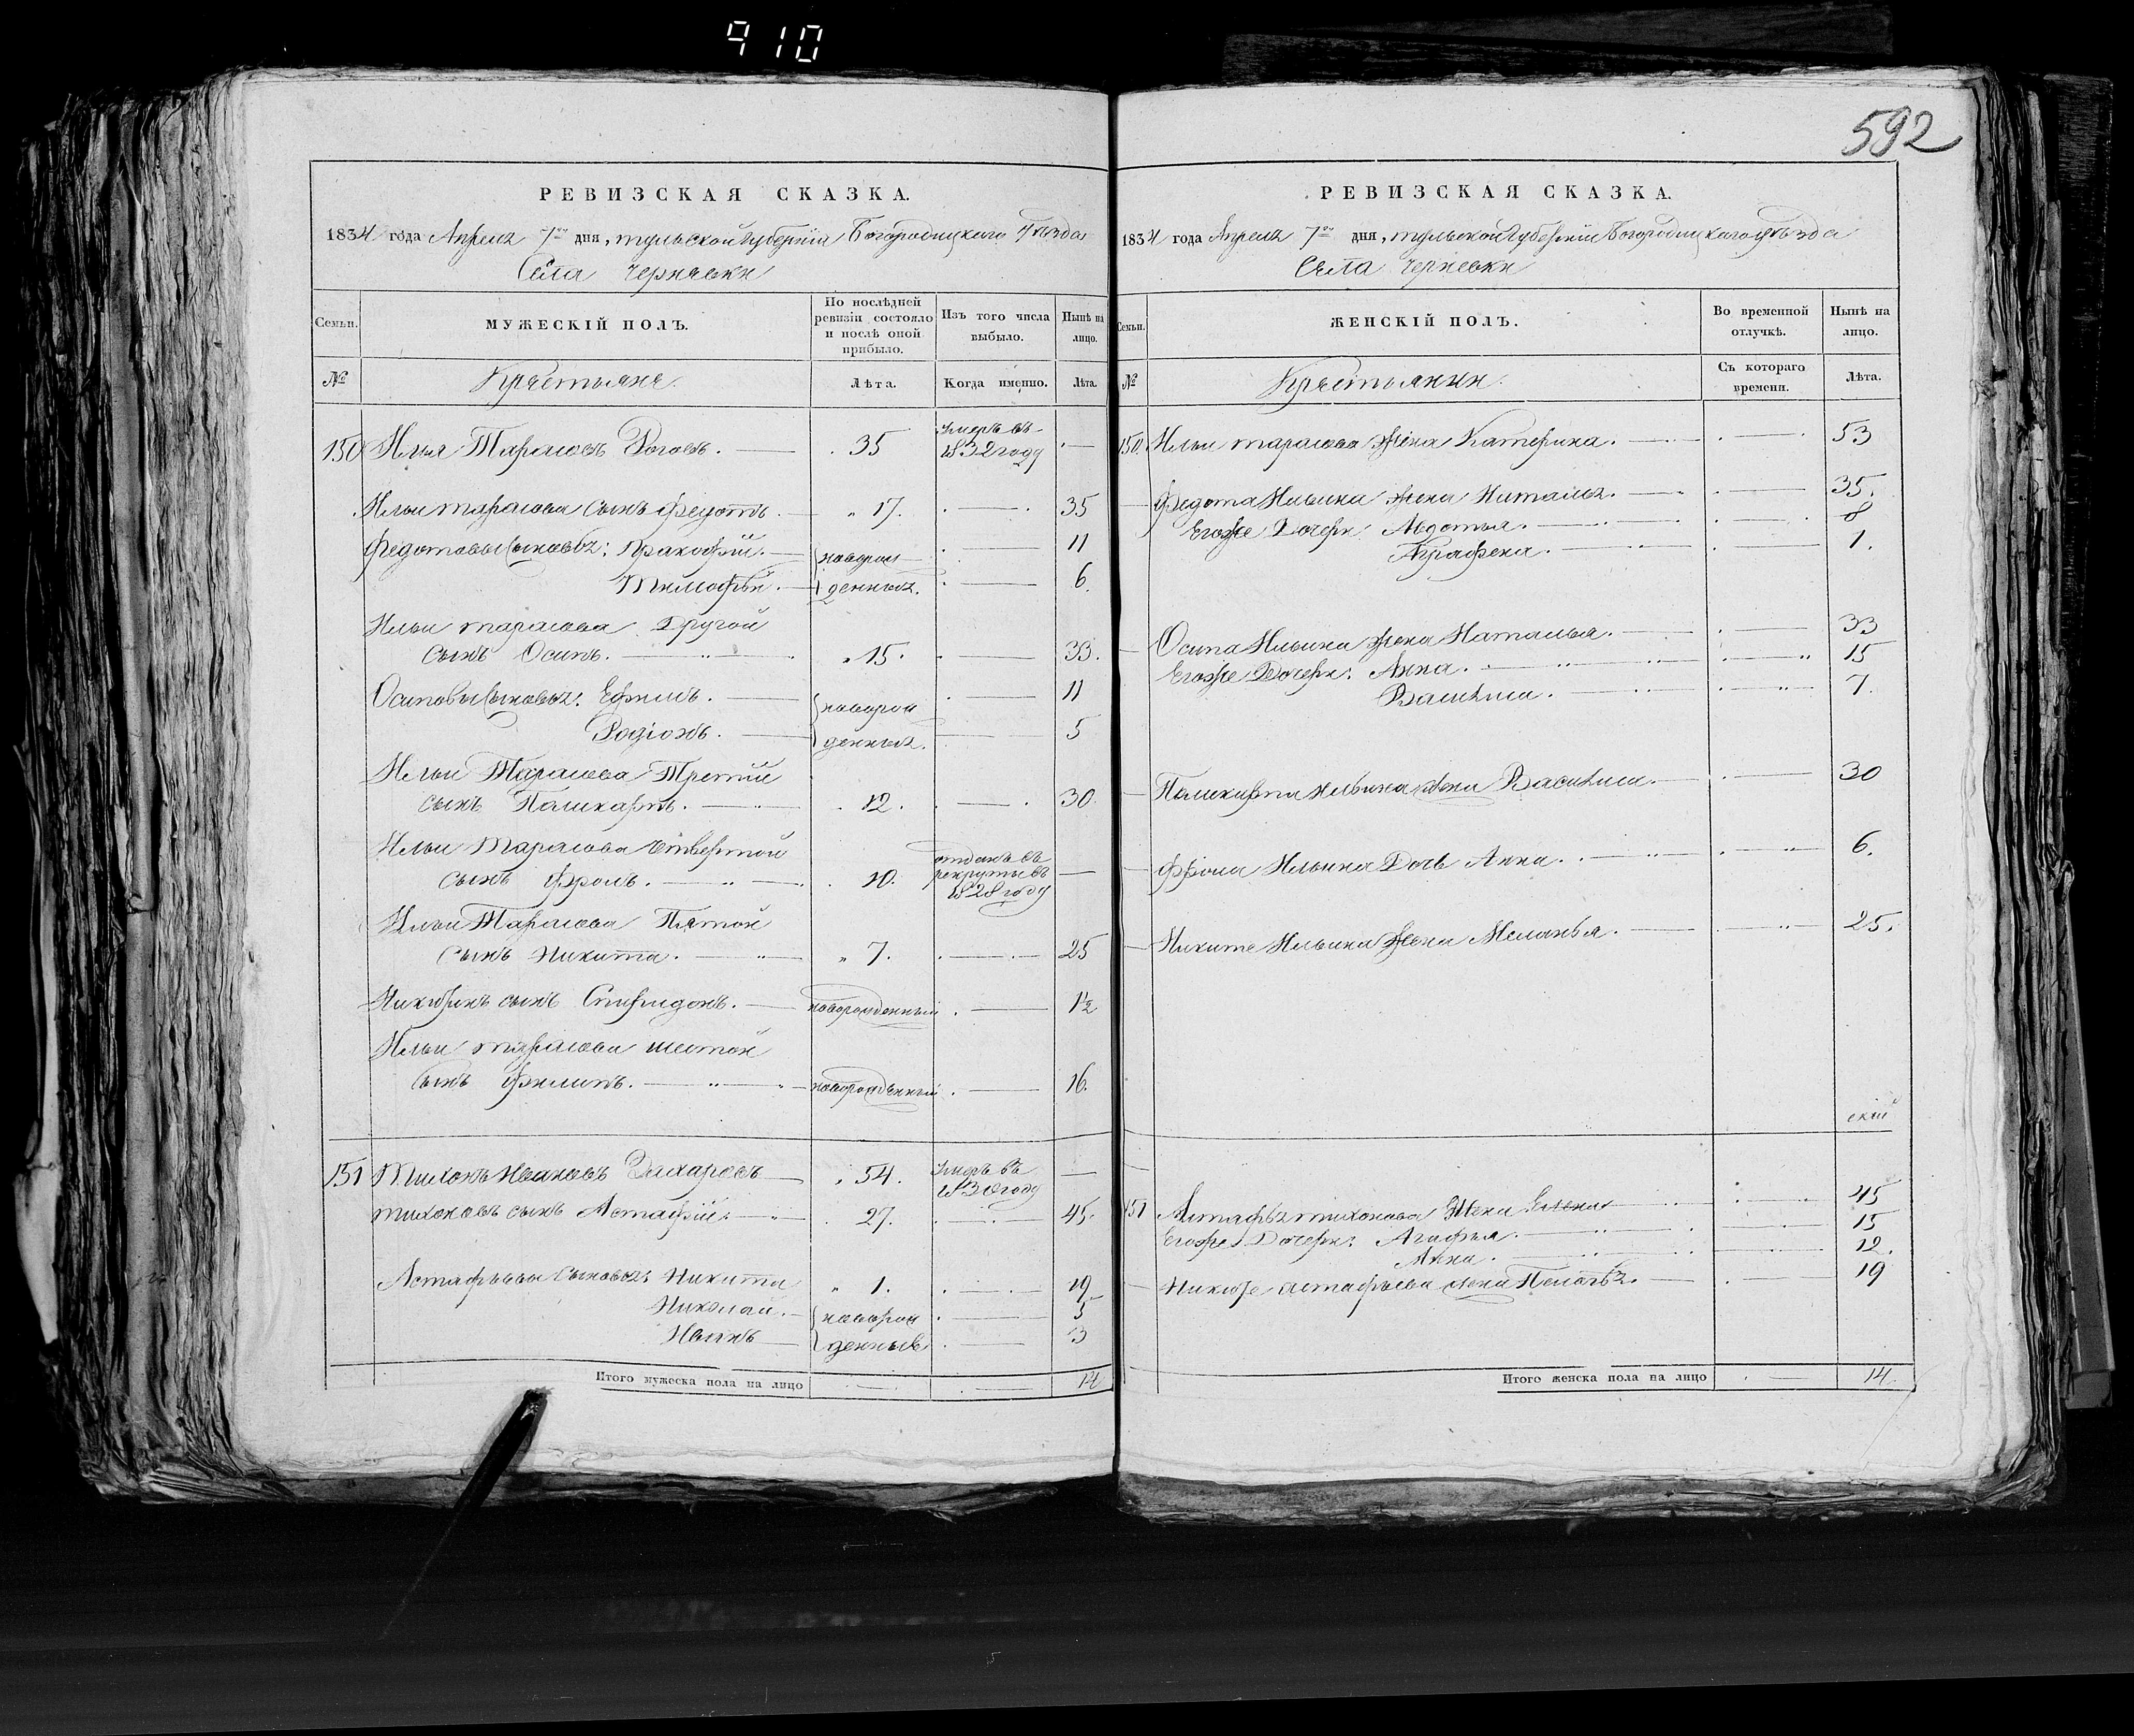 910
592
РЕВИЗСКАЯ СКАЗКА.
1834 года Апреля 7го дня, тульской Губернiи Богородицкаго уѣзда
Села Черневки
Семьи.
МУЖЕСКІЙ ПОЛЪ.
По послѣдней ревизіи состояло и послѣ оной прибыло.
Изъ того числа выбыло.
Нынѣ на лицо.
№
Крестьяне.
Лѣта.
Когда именно.
Лѣта.
150 Илья Тарасовъ Роговъ. 35 умеръ въ 1832 году
Ильи тарасова сынъ федотъ. 17. 35
федотовы сыновья: Пракофiй. 11
новорож
Тимофѣй. денныя. 6
Ильи тарасова другой
сынъ Осипъ. 15. 33.
Осиповы сыновья: Ефимъ. 11
новорож
Родiонъ. денныя. 5
Ильи Тарасова Третiй
сынъ Паликарпъ. 12. 30.
Ильи Тарасова четвертой
сынъ фролъ. 10. отданъ въ рекруты въ 1828 году
Ильи Тарасова Пятой
сынъ Никита. 7. 25
Никитинъ сынъ Спиридонъ. новорожденный 1½
Ильи тарасова шестой
сынъ филипъ. новорожденный 16.
151 Тихонъ Ивановъ Захаровъ 54. умеръ въ 1830 году
тихоновъ сынъ Астафiй: 27. 45.
Астафьевы сыновья: Никита 1. 19
Николай. новорож 5
Иванъ денныя 3
Итого мужеска пола на лицо 14
РЕВИЗСКАЯ СКАЗКА.
1834 года Апреля 7го дня, тульской Губернiи Богородицкаго уѣзда
Села Черневки
Семьи.
ЖЕНСКІЙ ПОЛЪ.
Во временной отлучкѣ.
Нынѣ на лицо.
№
Крестьянки.
Съ котораго времени.
Лѣта.
150. Ильи тарасова жена Катерина. 53
федота Ильина жена Наталья. 35.
Егоже Дочери: Авдотья. 8
Аграфена. 1.
Осипа Ильина жена Наталья. 33
Егоже Дочери: Анна. 15
Василиса. 7.
Паликарпа Ильина жена Василиса. 30
фрола Ильина Дочь Анна. 6.
Никите Ильина жена Меланья. 25.
151 Астафья тихонова жена Елена 45
Егоже Дочери: Агафья. 15
Анна. 12.
Никиты астафьева жена Пелагѣя. 19
Итого женска пола на лицо 14.